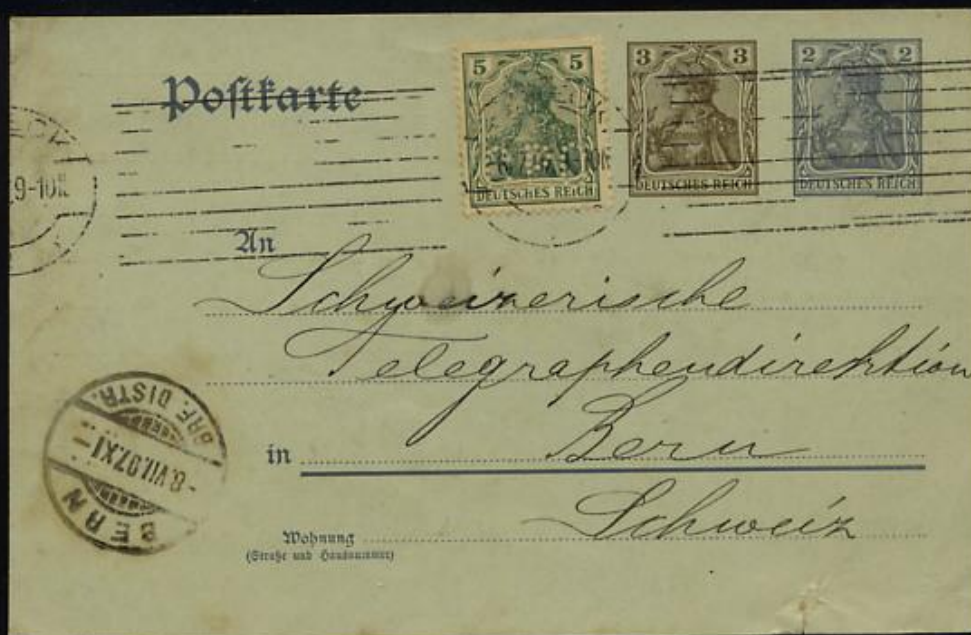 Postkarte
5 5
DEUTSCHES REICH
3 3
DEUTSCHES REICH
2 2
DEUTSCHES REICH
9-10N.
An
Schweizerische
Telegraphendirektion
in Bern
Schweiz
Wohnung
(Straße und Hausnummer)
BRF. DISTR.
-8.VII.07.XI-
BERN